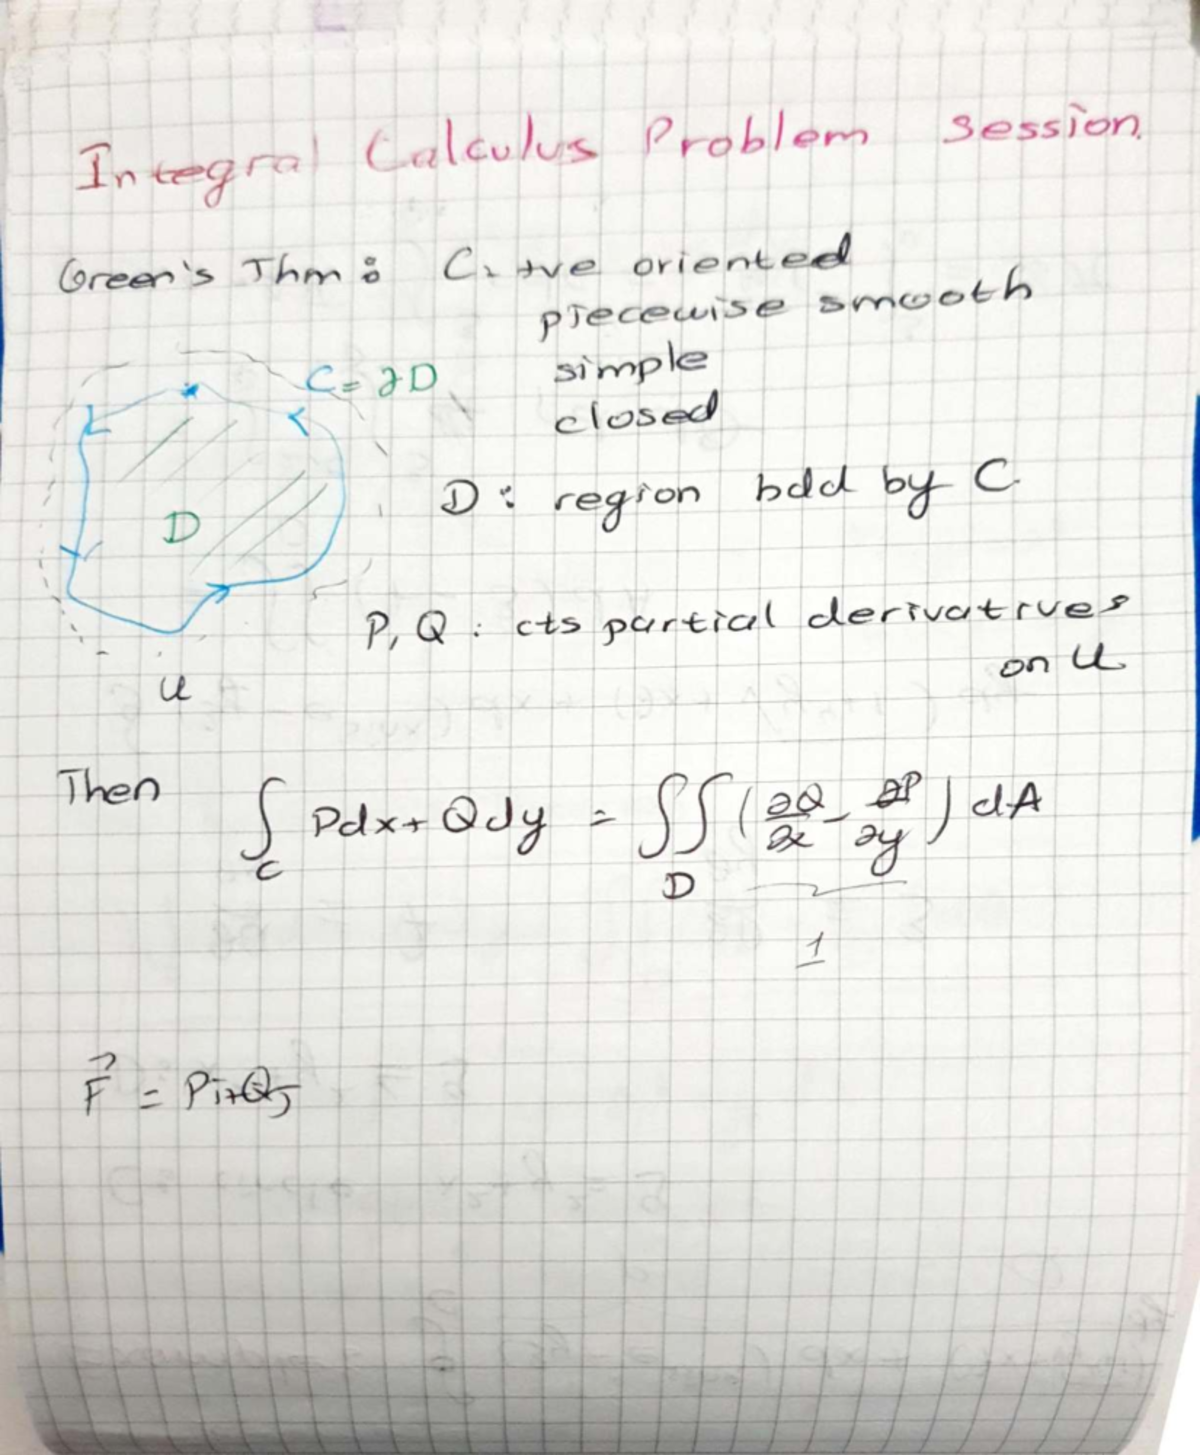 Integral Calculus Problem session.
Green's Thm: C: +ve oriented
piecewise smooth
simple
closed
C = ∂D
D
U
D: region bdd by C.
P, Q: cts partial derivatives
on U
Then ∫_C Pdx + Qdy = ∬_D (∂Q/∂x - ∂P/∂y) dA
1
F⃗ = Pi+Qj